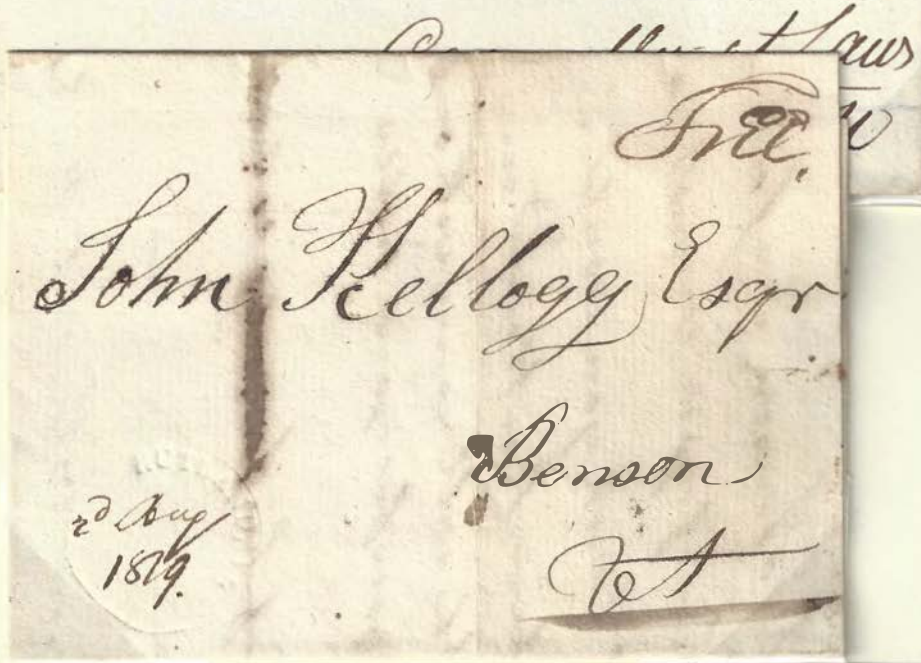 at Laws
Free.
John Kellogg Esqr
Benson
Vt
2d Aug
1819.